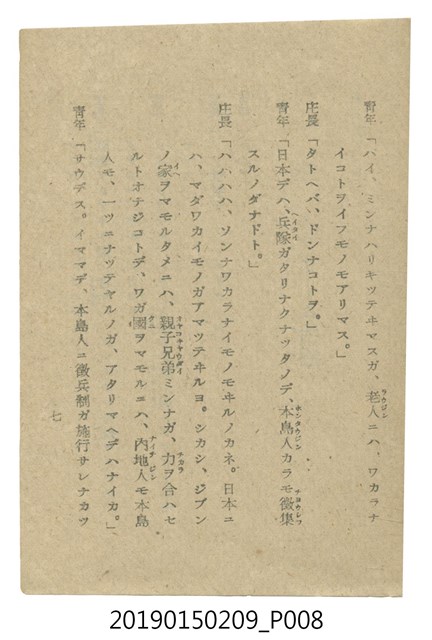 青年「ハイ、ミンナハリキツテヰマスガ、老人ニハ、ワカラナ
ラウジン
イコトヲイフモノモアリマス。」
庄長「タトヘバ、ドンナコトヲ。」
青年「日本デハ、兵隊ガタリナクナッタノデ、本島人カラモ徴集
ヘイタイ
ホンタウジン
チヨウシフ
スルノダナドト。」
庄長「ハハハハ、ソンナワカラナイモノモヰルノカネ。日本ニ
ハ、マダワカイモノガアマツテヰルヨ。シカシ、ジブン
ノ家ヲマモルタメニハ、親子兄弟ミンナガ、力ヲ合ハセ
イヘ
オヤコキヤウダイ
チカラ
ルトオナジコトデ、ワガ國ヲマモルニハ、内地人モ本島
クニ
ナイチジン
人モ、一ツニナツテヤルノガ、アタリマヘデハナイカ。」
青年「サウデス。イママデ、本島人ニ徴兵制ガ施行サレナカツ
七
20190150209_P008